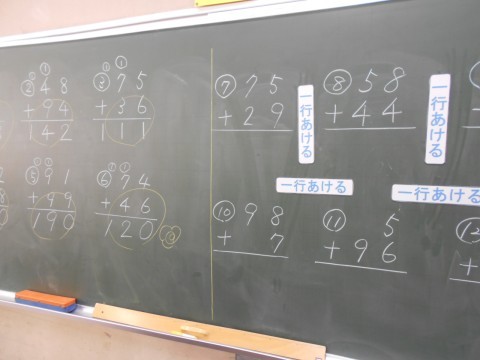 ① ①
② 48 ③ 75
+94 +36
142 111
① ① ①
⑤ 91 ⑥ 74
+99 +46
190 120
⑦ 75 ⑧ 58
+29 +44
一行あける
一行あける
一行あける
一行あける
⑩ 98 ⑪ 5
+ 7 +96
⑫
+